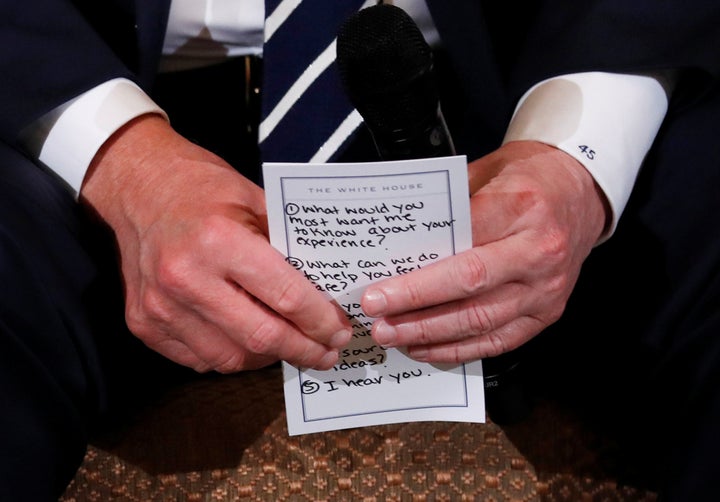 THE WHITE HOUSE
① What would you
most want me
to know about your
experience?
② What can we do
to help you feel
ideas?
⑤ I hear you.
45